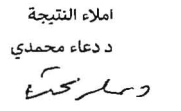 املاء النتيجة
د دعاء محمدي